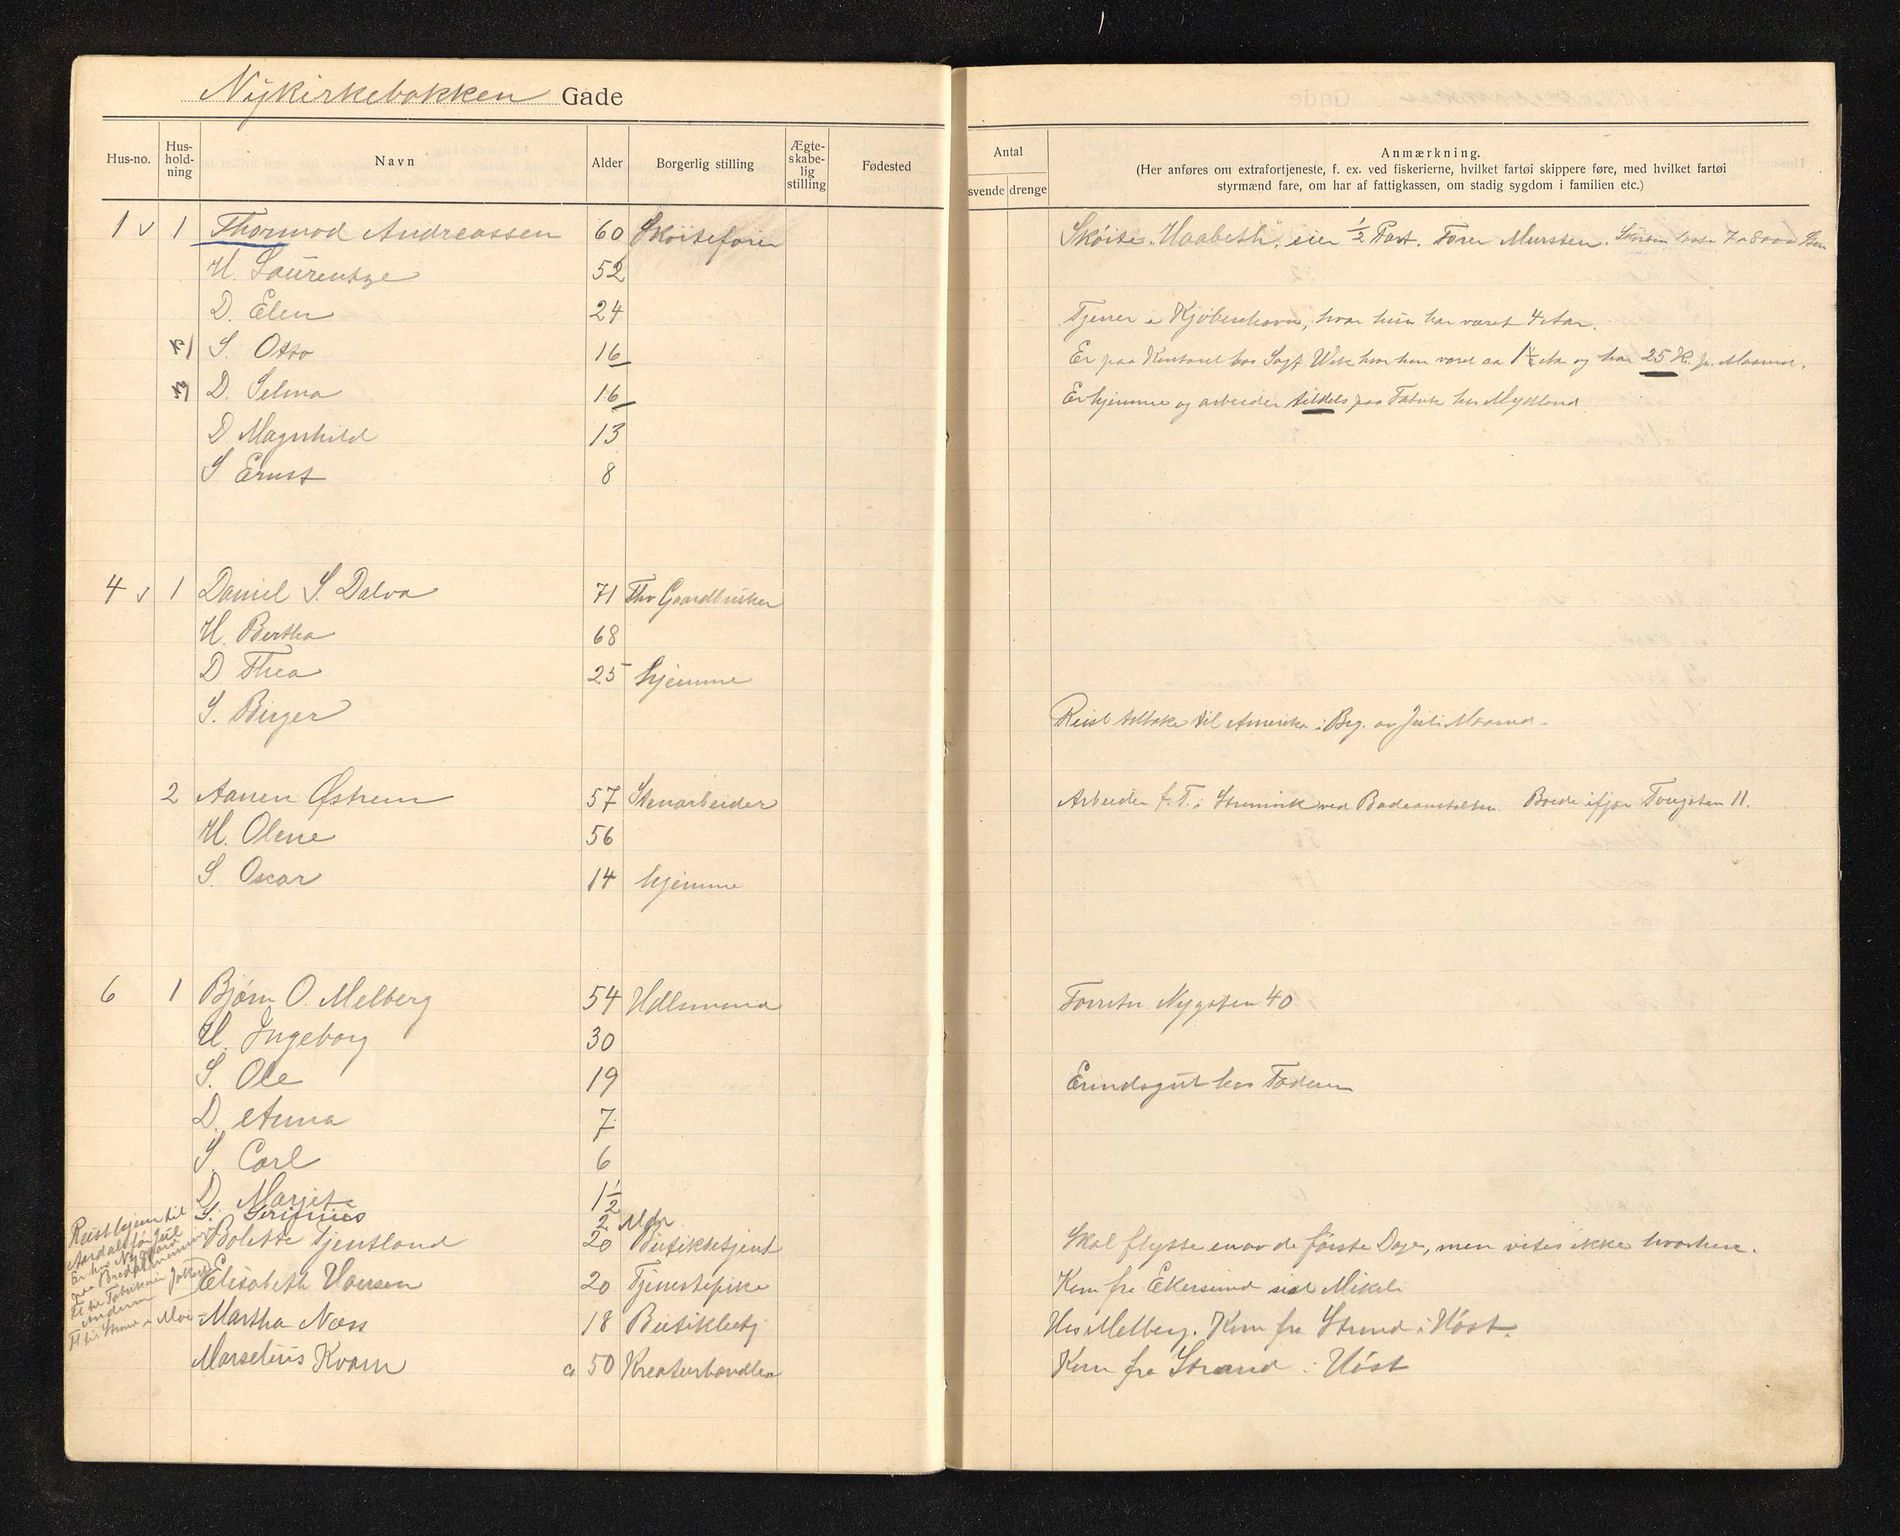 Nykirkebakken Gade
Hus-no. Hus-hold-ning Navn Alder Borgerlig stilling Ægte-skabe-lig stilling Fødested
Antal svende drenge
Anmærkning.
(Her anføres om extrafortjeneste, f. ex. ved fiskerierne, hvilket fartøi skippere føre, med hvilket fartøi
styrmænd fare, om har af fattigkassen, om stadig sygdom i familien etc.)
1 v 1 Thormod Andreassen 60 Skøitefører Skøite "Haabeth", eier 1/2 Part. Fører Mursten. 7 a 8000
H. Laurentze 52
D. Elen 24 Tjener i Kjøbenhavn, hvor hun har været 4 Aar.
S. Otto 16 Er paa Kontoret hos hvor han været ca 1 1/2 Aar og har 25 Kr. pr. Maaned.
D. Selma 16 Er hjemme og arbeider tildels paa Fabrik hos Mydland
D. Magnhild 13
S Ernst 8
4 v 1 Daniel S. Dalva 71 Fhv Gaardbruker
H. Bertha 68
D Thea 25 hjemme
S. Birger Reist tilbake til Amerika i Beg. av Juli Maaned.
2 Aanen Østrem 57 Stenarbeider Arbeider f. T. i Strømvik ved Badeanstalten. Boede ifjor Tougaten 11.
H. Olene 56
S. Oscar 14 hjemme
6 1 Bjørn O. Melberg 54 Udlsmand Forretn. Nygaten 40
H. Ingeborg 30
S. Ole 19 Erindsgut hos Faderen
D. Anna 7
S. Carl 6
D. Marjet 1 1/2
S. Serinius 2 Mdr
Reist hjem til
Aardal før Jul
Bolette Tjentland 20 Butikbetjent Skal flytte en av de første Dage, men vites ikke hvorhen.
Elisabeth Hansen 20 Tjenestepike Kom fra Ekersund sid Mikeli
Martha Næss 18 Butikbetj Hos Melberg. Kom fra Strand i Høst.
Marselius Kvam ca 50 Kreaturhandler Kom fra Strand i Høst